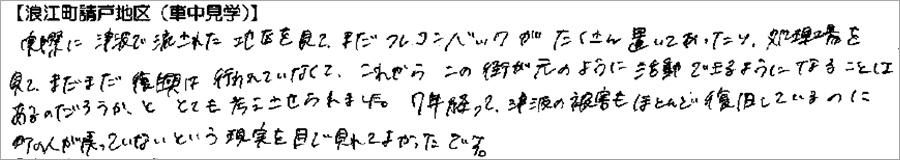 【浪江町請戸地区（車中見学）】
実際に津波で流された地区を見て、まだフレコンバックがたくさん置いてあったり、処理工場を
見て、まだまだ復興は行われていなくて、これから この街が元のように活動できるようになることは
あるのだろうか、と とても考えさせられました。7年経って、津波の被害もほとんど復旧しているのに
町の人が戻っていないという現実を目で見れてよかったです。